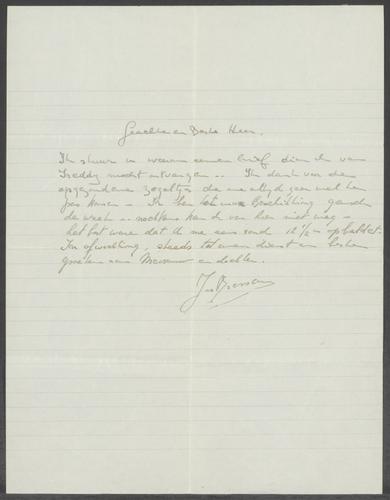 Geachte en Beste Heer.
Ik stuur u weer een brief dien ik van
Freddy mocht ontvangen.. Ik dank voor de
zegeltjes die me altijd wel
pas komen - Ik ben tot uwe beschikking
de week - nochtans kan ik van hier niet weg -
het best ware dat U me eens rond 12 1/2 u opbeldet.
In afwachting, steeds tot uwen dienst en beste
groeten aan Mevrouw en dochter.